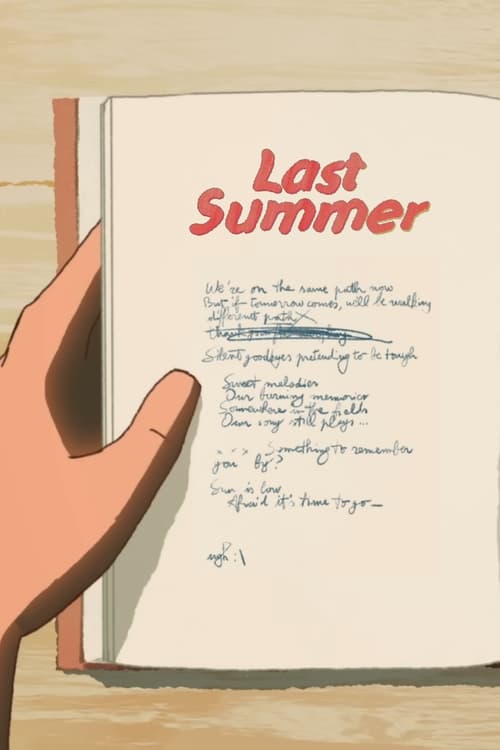 Last
Summer
We're on the same path now
But if tomorrow comes, we'll be walking
different path
Silent goodbyes pretending to be tough
Sweet melodies
Our burning memories
Somewhere in the fields
Our song still plays...
Something to remember
you by?
Sun is low
Afraid it's time to go—
ugh :\